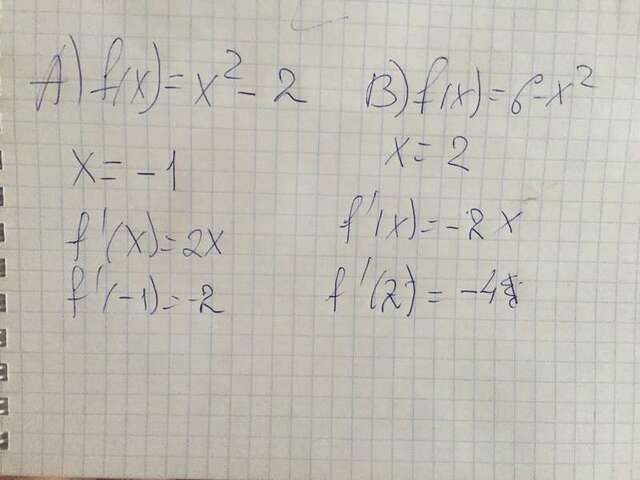 A) f(x) = x² - 2
x = -1
f'(x) = 2x
f'(-1) = -2
B) f(x) = 6 - x²
x = 2
f'(x) = -2x
f'(2) = -4